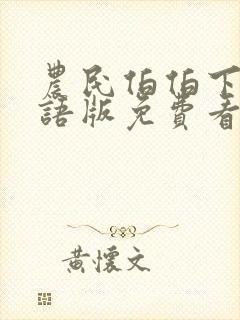 農民伯伯下
語版免費看
黃懷文